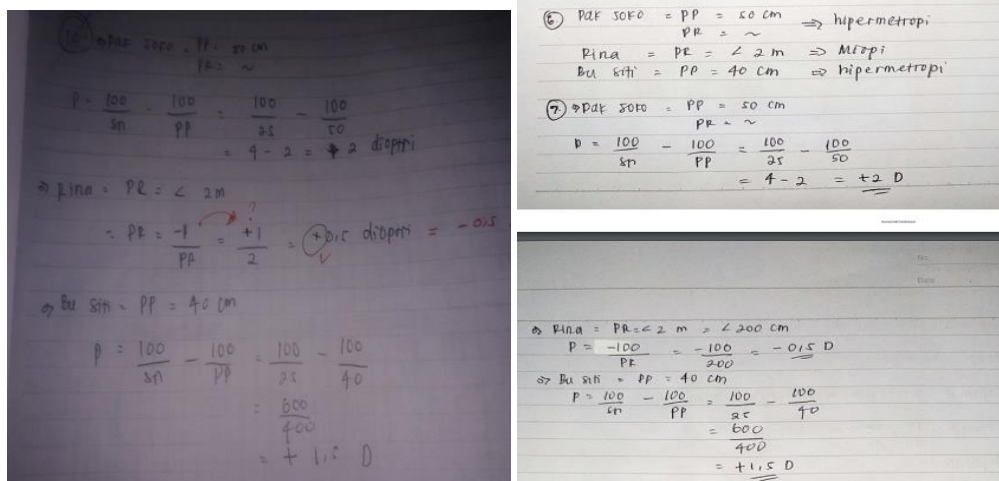 10. → Pak Soko = PP = 50 cm
PR = ~
P = 100/sn - 100/PP = 100/25 - 100/50
= 4 - 2 = +2 dioptri
→ Rina = PR = < 2m
?
= PR = -1/PR = +1/2 = +0,5 dioptri = -0,5
→ Bu Siti = PP = 40 cm
P = 100/sn - 100/PP = 100/25 - 100/40
= 600/400
= + 1,5 D
6. Pak Soko = PP = 50 cm ⇒ hipermetropi
PR = ~
Rina = PR = < 2 m ⇒ Miopi
Bu Siti = PP = 40 cm ⇒ hipermetropi
7. → Pak Soko = PP = 50 cm
PR = ~
P = 100/sn - 100/PP = 100/25 - 100/50
= 4 - 2 = +2 D
No.
Date
→ Rina = PR = < 2 m = < 200 cm
P = -100/PR = -100/200 = -0,5 D
→ Bu Siti = PP = 40 cm
P = 100/sn - 100/PP = 100/25 - 100/40
= 600/400
= +1,5 D